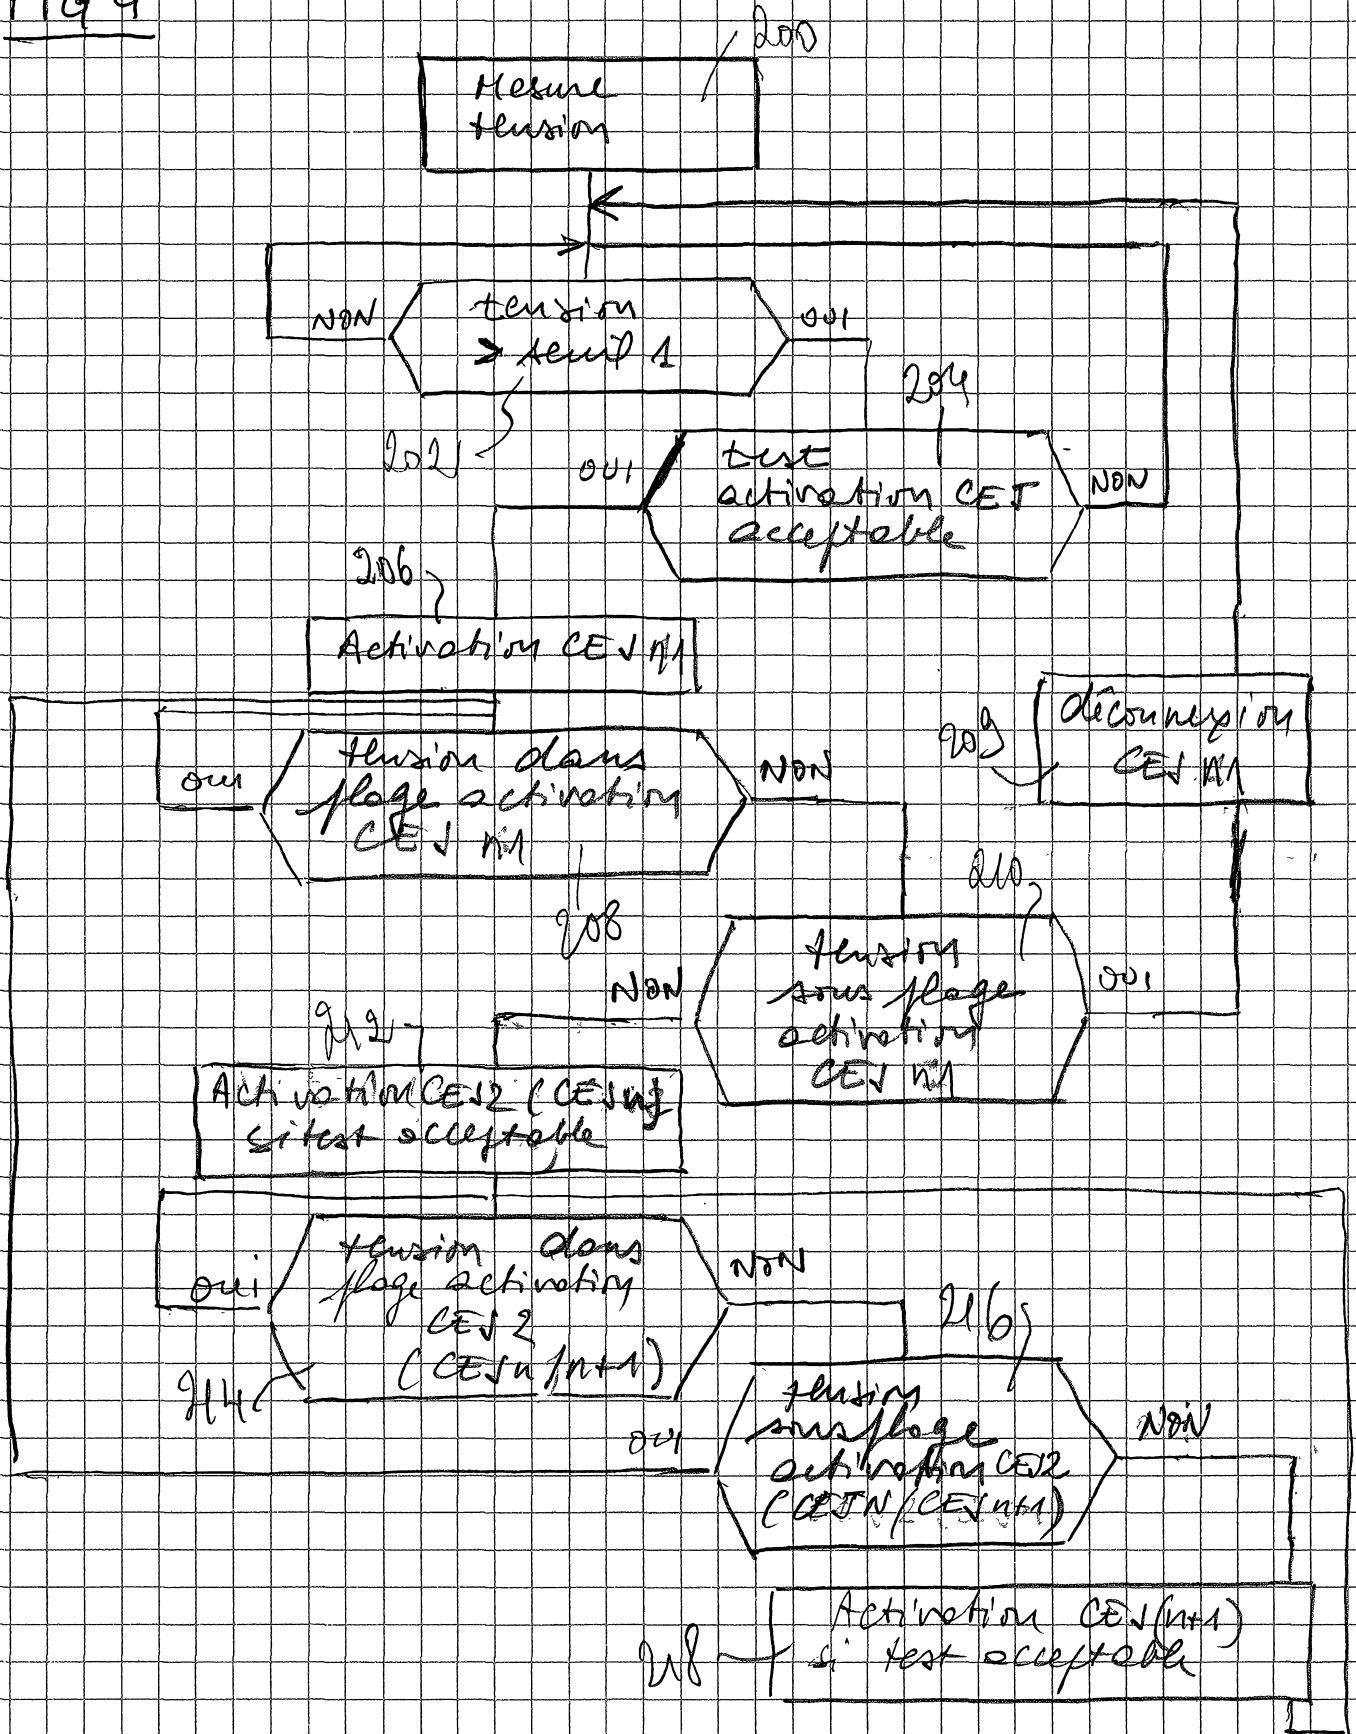 FIG 4
200
Mesure
tension
NON
tension
> seuil 1
OUI
202
204
OUI
test
activation CEJ
acceptable
NON
206
Activation CEJ n°1
209
déconnexion
CEJ n°1
oui
tension dans
plage activation
CEJ n°1
NON
208
210
NON
tension
sous plage
activation
CEJ n°1
OUI
212
Activation CEJ2 (CEJn)
si test acceptable
oui
tension dans
plage activation
CEJ 2
(CEJn/n+1)
NON
214
216
OUI
tension
sous plage
activation CEJ2
(CEJN/CEJn+1)
NON
218
Activation CEJ(n+1)
si test acceptable